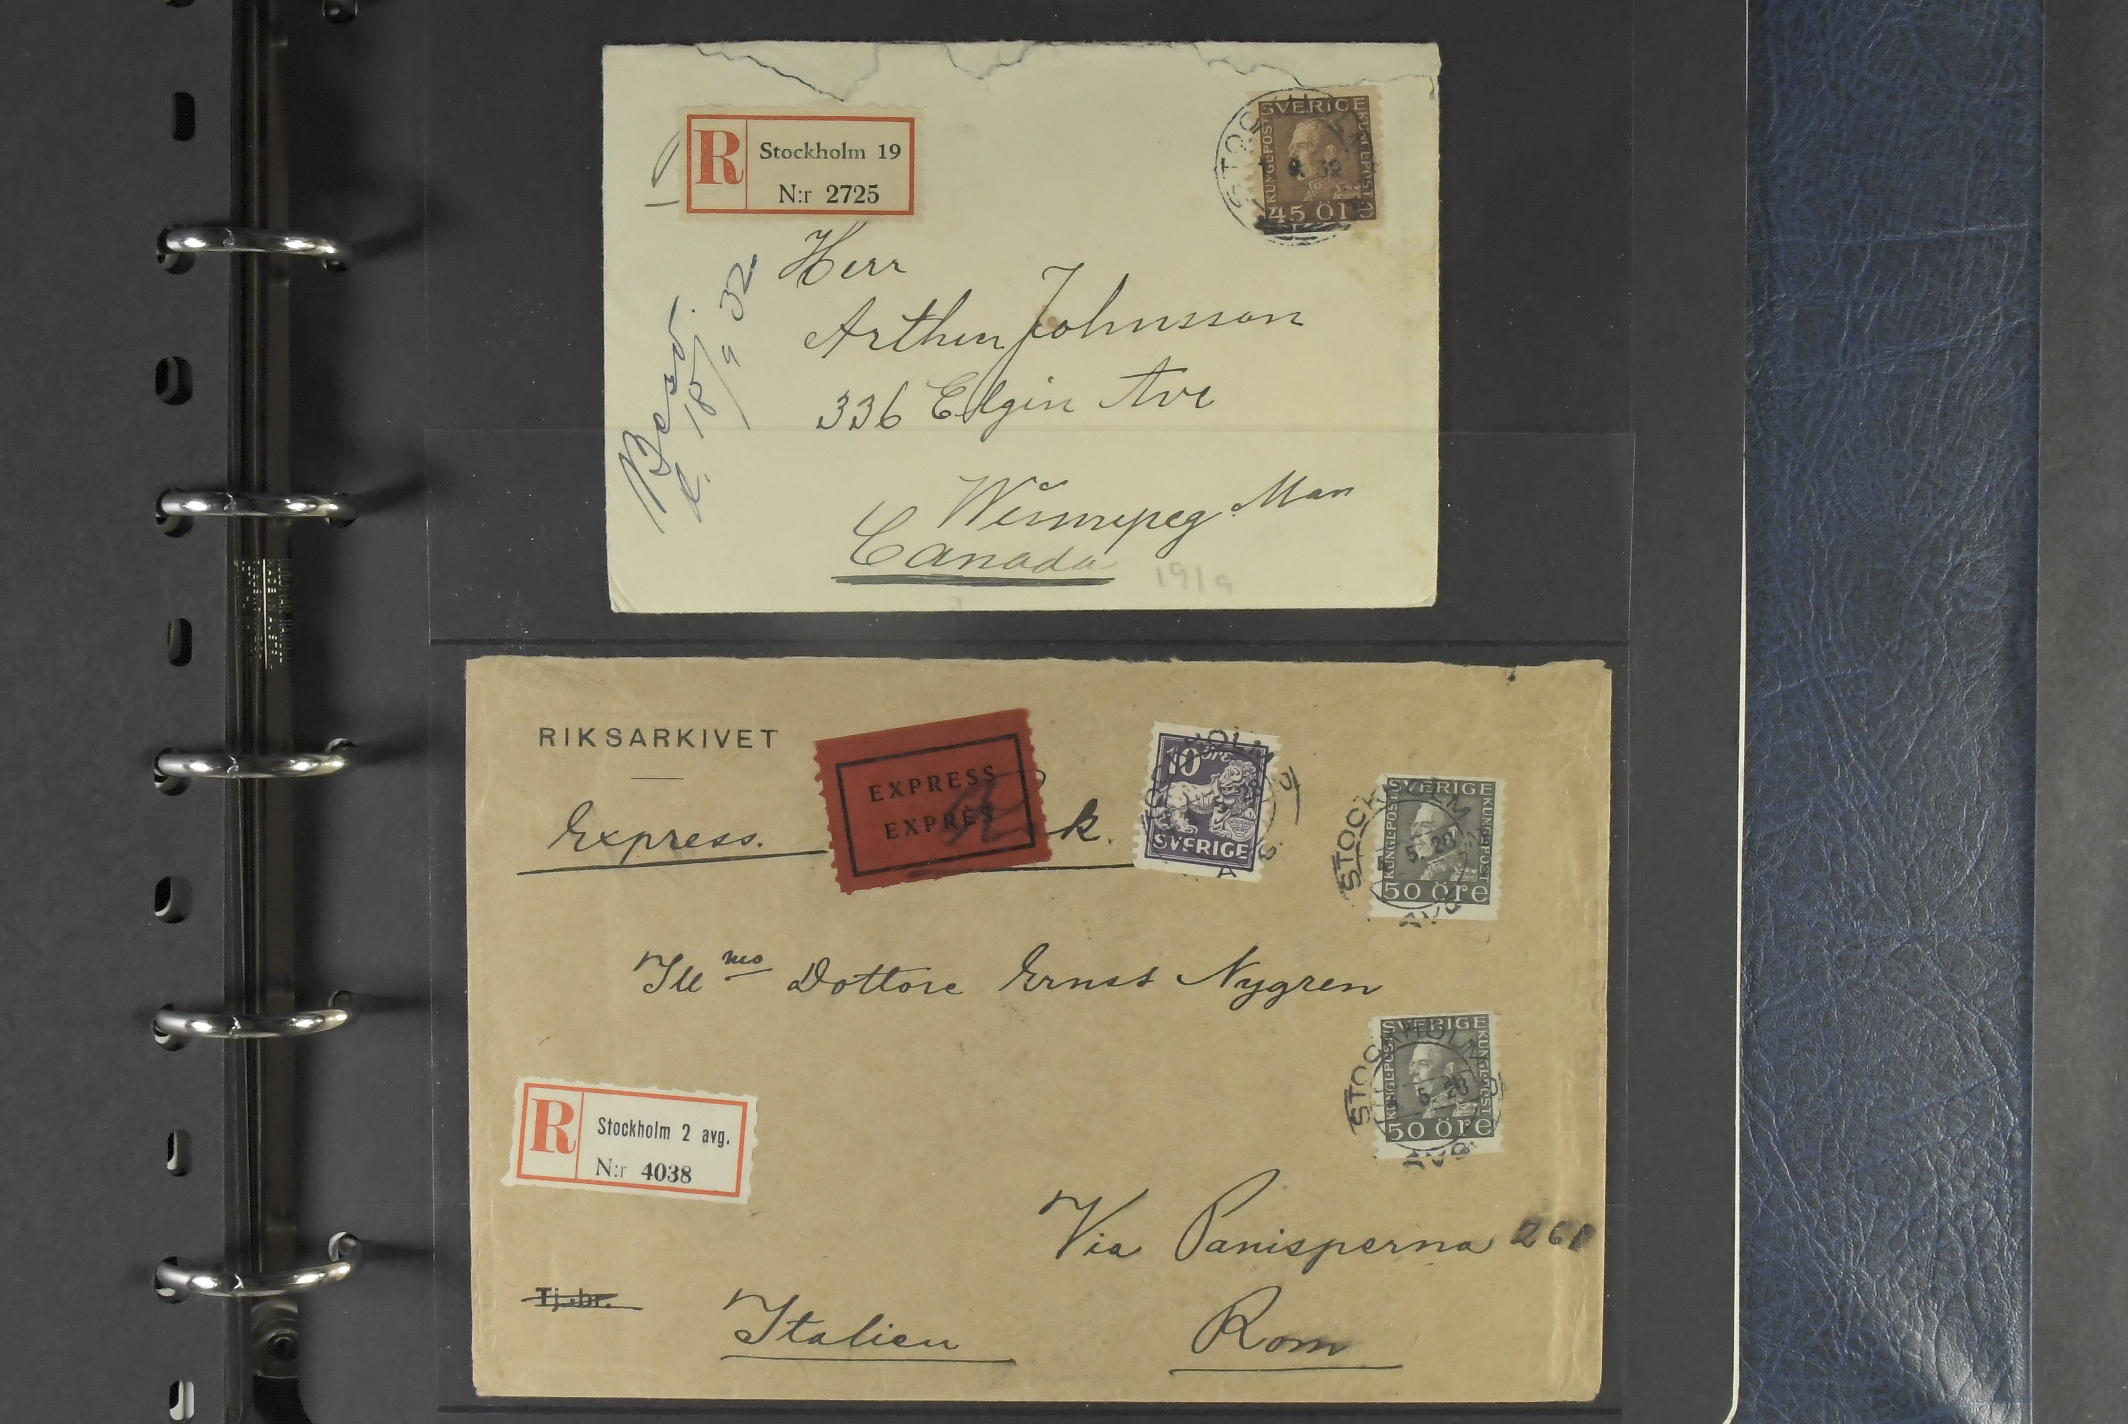 R
Stockholm 19
N:r 2725
SVERIGE
KUNGL·POST
KUNGL·POST
45 ÖRE
STOCKHOLM
32
Herr
Arthur Johnsson
336 Elgin Ave
Winnipeg Man
Canada
Besv.
d. 18/9 32
191a
RIKSARKIVET
Express.
EXPRESS
EXPRÈS
k.
10 öre
SVERIGE
SVERIGE
KUNGL·POST
KUNGL·POST
50 öre
STOCKHOLM
5 28
AVG
Ill mo Dottore Ernst Nygren
SVERIGE
KUNGL·POST
KUNGL·POST
50 öre
STOCKHOLM
5 28
AVG
R
Stockholm 2 avg.
N:r 4038
Via Panisperna 261
Tj.br.
Italien
Rom